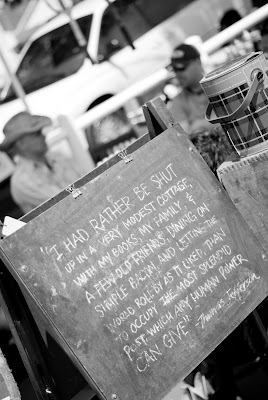 "I HAD RATHER BE SHUT
UP IN A VERY MODEST COTTAGE,
WITH MY BOOKS, MY FAMILY, &
A FEW OLD FRIENDS, DINING ON
SIMPLE BACON, AND LETTING THE
WORLD ROLL BY AS IT LIKED, THAN
TO OCCUPY THE MOST SPLENDID
POST, WHICH ANY HUMAN POWER
CAN GIVE." -Thomas Jefferson